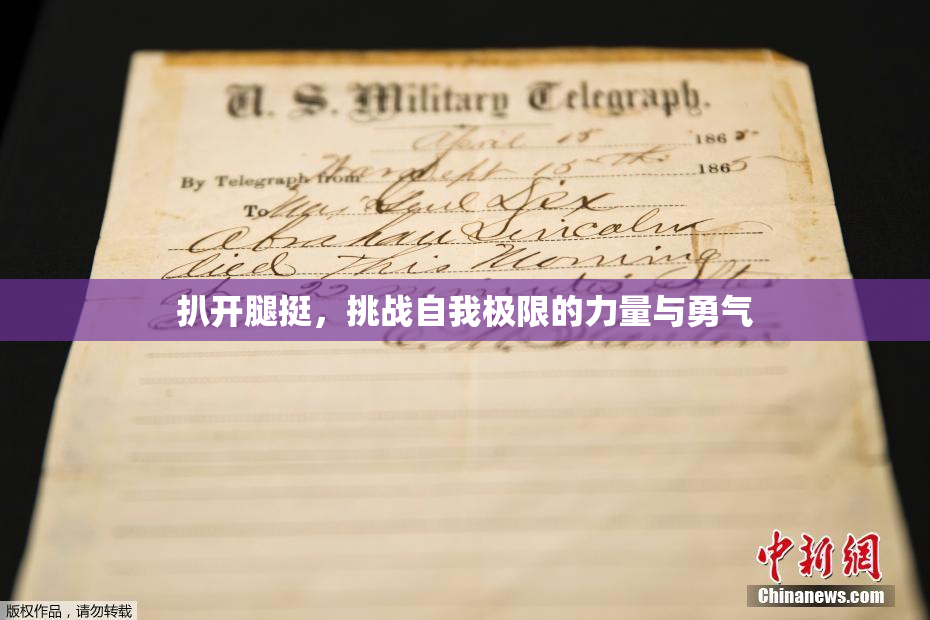 U. S. Military Telegraph.
April 15 1865
By Telegraph from War Dept 15th 1865
To Maj Genl Dix
Abraham Lincoln
died This Morning
at 22 minutes after
扒开腿挺，挑战自我极限的力量与勇气
E. M. Stanton
中新网
Chinanews.com
版权作品，请勿转载